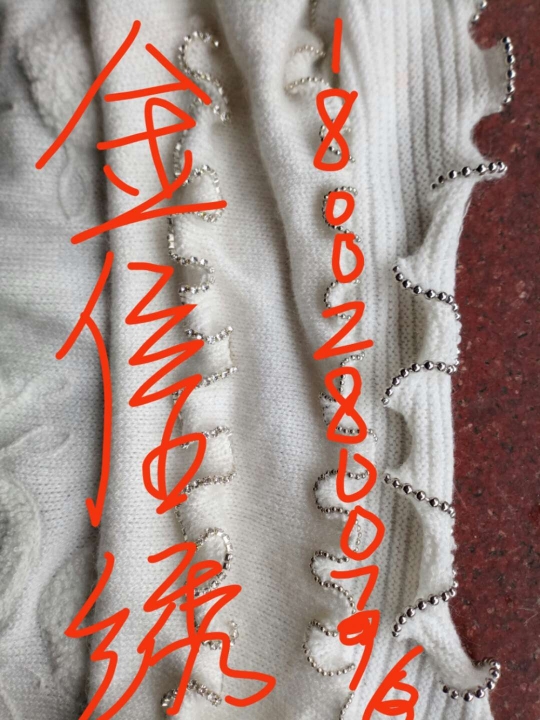 金信绣
1800280079